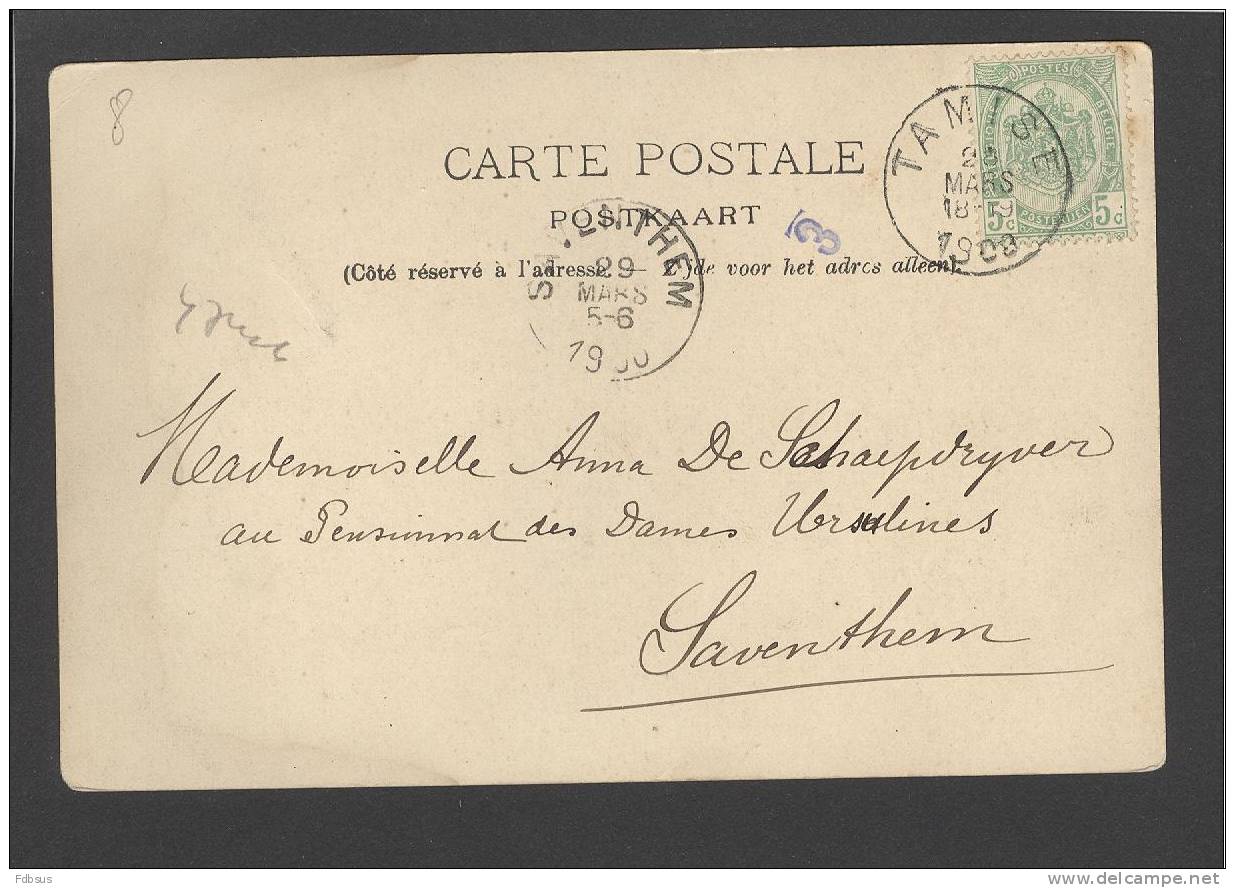 8
POSTES BELGIE
POSTERIJEN
5c 5c
TAMISE
MARS
CARTE POSTALE
POSTKAART
3
(Côté réservé à l'adresse. — Zijde voor het adres alleen).
THEM
29
MARS
5-6
Mademoiselle Anna De Schaepdryver
au Pensionnat des Dames Ursulines
Saventhem
Fdbsus
www.delcampe.net